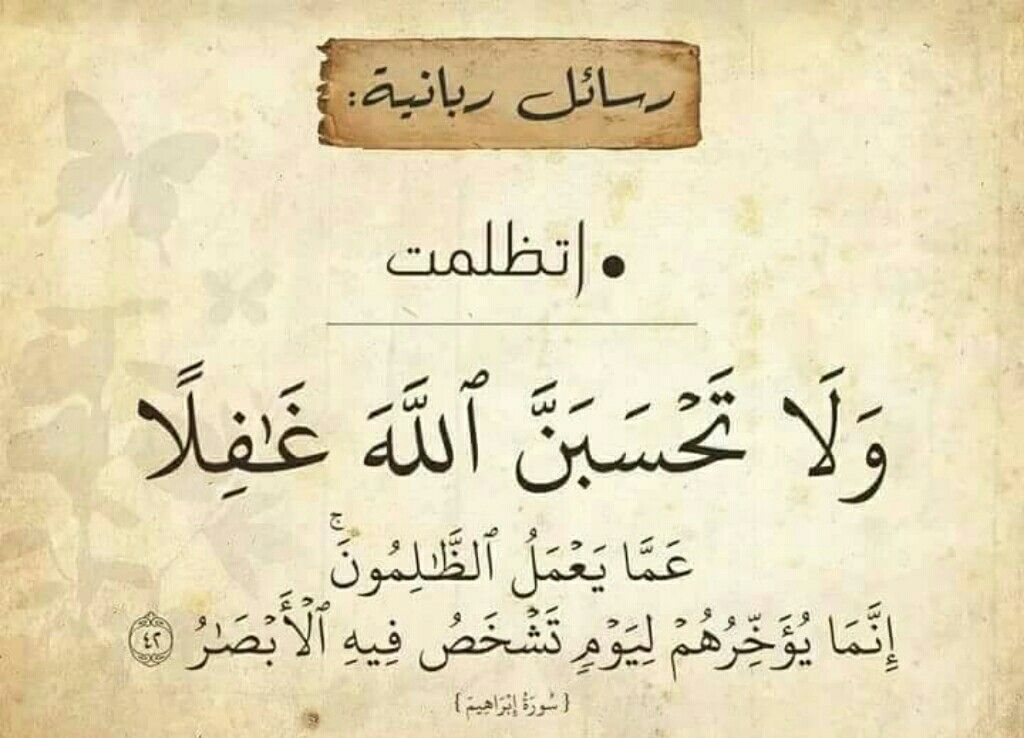 رسائل ربانية:
• اتظلمت
وَلَا تَحْسَبَنَّ ٱللَّهَ غَٰفِلًا
عَمَّا يَعْمَلُ ٱلظَّٰلِمُونَ ۚ
إِنَّمَا يُؤَخِّرُهُمْ لِيَوْمٍ تَشْخَصُ فِيهِ ٱلْأَبْصَٰرُ ٤٢
{ سُورَةُ إِبْرَاهِيمَ }